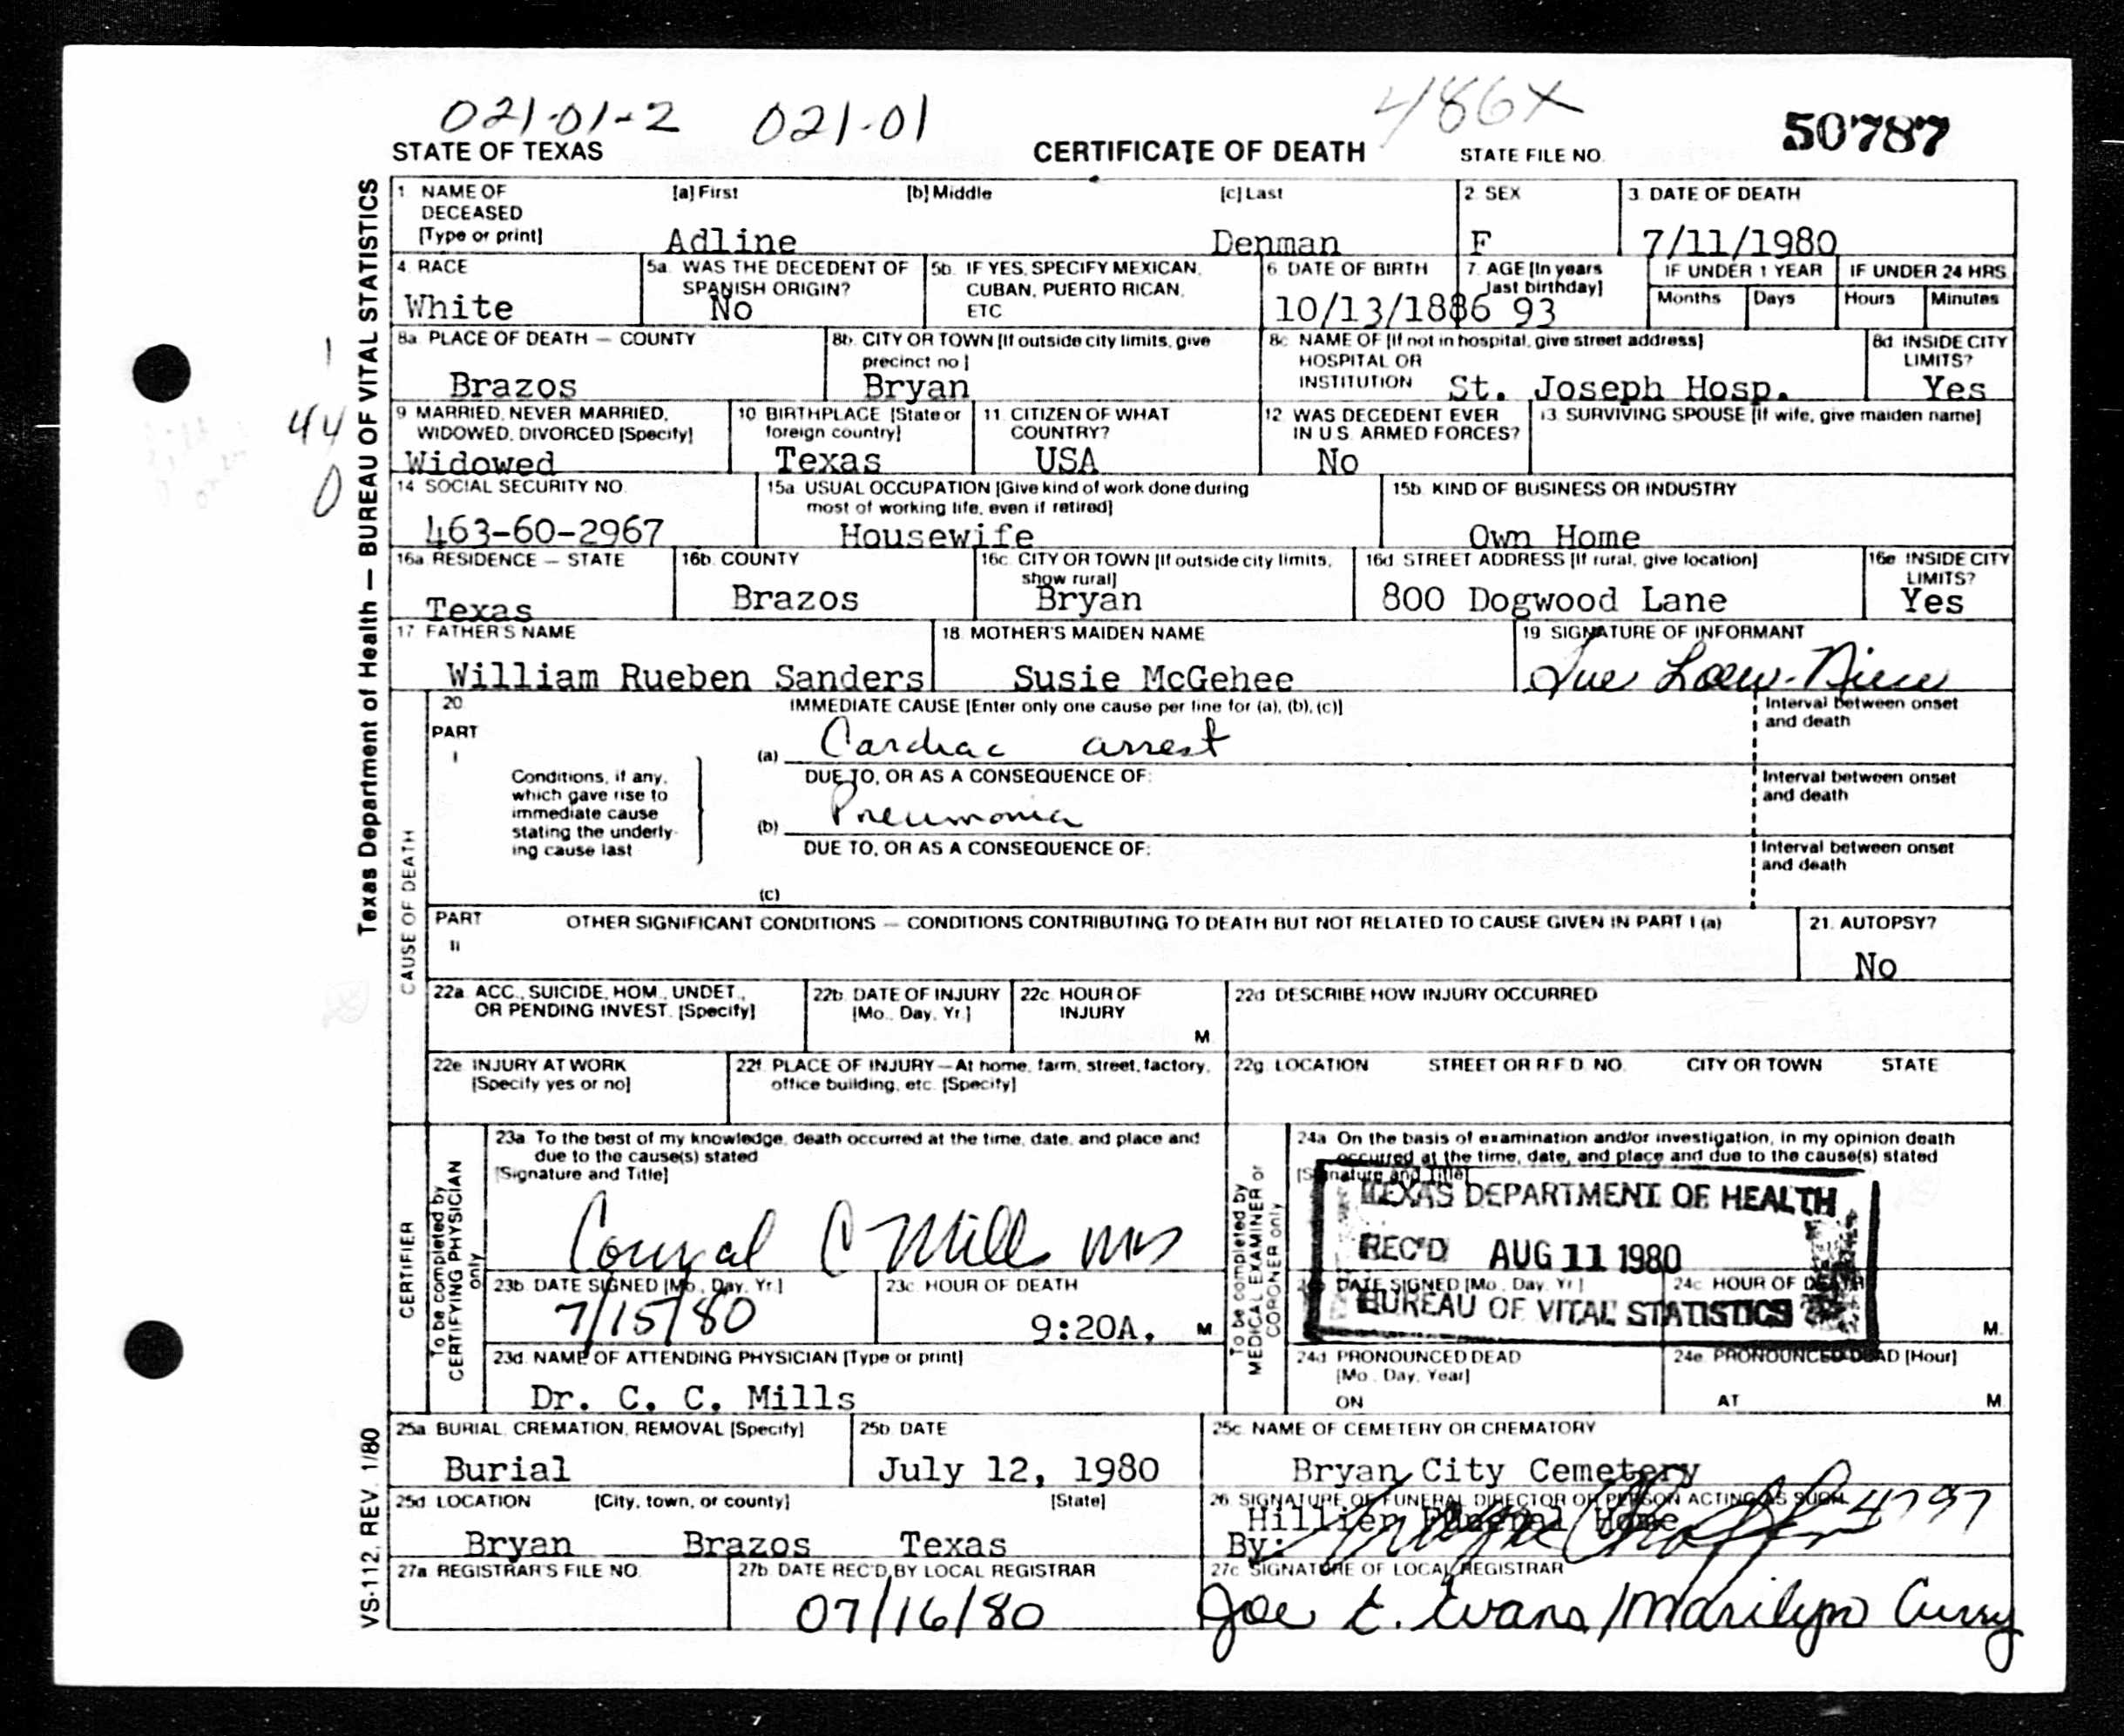 021-01-2 021-01 486X
STATE OF TEXAS CERTIFICATE OF DEATH STATE FILE NO. 50787
Texas Department of Health — BUREAU OF VITAL STATISTICS
1. NAME OF DECEASED [Type or print] [a] First [b] Middle [c] Last 2. SEX 3. DATE OF DEATH
Adline Denman F 7/11/1980
4. RACE 5a. WAS THE DECEDENT OF SPANISH ORIGIN? 5b. IF YES, SPECIFY MEXICAN, CUBAN, PUERTO RICAN, ETC 6. DATE OF BIRTH 7. AGE [In years last birthday] IF UNDER 1 YEAR IF UNDER 24 HRS
Months Days Hours Minutes
White No 10/13/1886 93
8a. PLACE OF DEATH — COUNTY 8b. CITY OR TOWN [If outside city limits, give precinct no.] 8c. NAME OF [If not in hospital, give street address] HOSPITAL OR INSTITUTION 8d. INSIDE CITY LIMITS?
Brazos Bryan St. Joseph Hosp. Yes
1
44
0
9. MARRIED, NEVER MARRIED, WIDOWED, DIVORCED [Specify] 10. BIRTHPLACE [State or foreign country] 11. CITIZEN OF WHAT COUNTRY? 12. WAS DECEDENT EVER IN U.S. ARMED FORCES? 13. SURVIVING SPOUSE [If wife, give maiden name]
Widowed Texas USA No
14. SOCIAL SECURITY NO. 15a. USUAL OCCUPATION [Give kind of work done during most of working life, even if retired] 15b. KIND OF BUSINESS OR INDUSTRY
463-60-2967 Housewife Own Home
16a. RESIDENCE — STATE 16b. COUNTY 16c. CITY OR TOWN [If outside city limits, show rural] 16d. STREET ADDRESS [If rural, give location] 16e. INSIDE CITY LIMITS?
Texas Brazos Bryan 800 Dogwood Lane Yes
17. FATHER'S NAME 18. MOTHER'S MAIDEN NAME 19. SIGNATURE OF INFORMANT
William Rueben Sanders Susie McGehee Sue Loew-Niece
CAUSE OF DEATH
20. IMMEDIATE CAUSE [Enter only one cause per line for (a), (b), (c)]
PART I
(a) Cardiac arrest Interval between onset and death
Conditions, if any, which gave rise to immediate cause stating the underlying cause last
DUE TO, OR AS A CONSEQUENCE OF:
(b) Pneumonia Interval between onset and death
DUE TO, OR AS A CONSEQUENCE OF:
(c) Interval between onset and death
PART II OTHER SIGNIFICANT CONDITIONS — CONDITIONS CONTRIBUTING TO DEATH BUT NOT RELATED TO CAUSE GIVEN IN PART I (a) 21. AUTOPSY?
No
22a. ACC., SUICIDE, HOM., UNDET., OR PENDING INVEST. [Specify] 22b. DATE OF INJURY [Mo., Day, Yr.] 22c. HOUR OF INJURY M. 22d. DESCRIBE HOW INJURY OCCURRED
22e. INJURY AT WORK [Specify yes or no] 22f. PLACE OF INJURY—At home, farm, street, factory, office building, etc. [Specify] 22g. LOCATION STREET OR R.F.D. NO. CITY OR TOWN STATE
CERTIFIER
To be completed by CERTIFYING PHYSICIAN only
23a. To the best of my knowledge, death occurred at the time, date, and place and due to the cause(s) stated
[Signature and Title]
Conrad C Mills MD
23b. DATE SIGNED [Mo., Day, Yr.] 23c. HOUR OF DEATH
7/15/80 9:20A. M
23d. NAME OF ATTENDING PHYSICIAN [Type or print]
Dr. C. C. Mills
To be completed by MEDICAL EXAMINER or CORONER only
24a. On the basis of examination and/or investigation, in my opinion death occurred at the time, date, and place and due to the cause(s) stated
[Signature and Title]
TEXAS DEPARTMENT OF HEALTH
REC'D AUG 11 1980
BUREAU OF VITAL STATISTICS
DATE SIGNED [Mo., Day, Yr.] 24c. HOUR OF DEATH M.
24d. PRONOUNCED DEAD [Mo., Day, Year] ON 24e. PRONOUNCED DEAD [Hour] AT M.
25a. BURIAL, CREMATION, REMOVAL [Specify] 25b. DATE 25c. NAME OF CEMETERY OR CREMATORY
Burial July 12, 1980 Bryan City Cemetery
25d. LOCATION [City, town, or county] [State] 26. SIGNATURE OF FUNERAL DIRECTOR OR PERSON ACTING AS SUCH
Bryan Brazos Texas Hillier Funeral Home
By: 4797
27a. REGISTRAR'S FILE NO. 27b. DATE REC'D BY LOCAL REGISTRAR 27c. SIGNATURE OF LOCAL REGISTRAR
07/16/80 Joe E. Evans/Marilyn Curry
VS-112, REV. 1/80